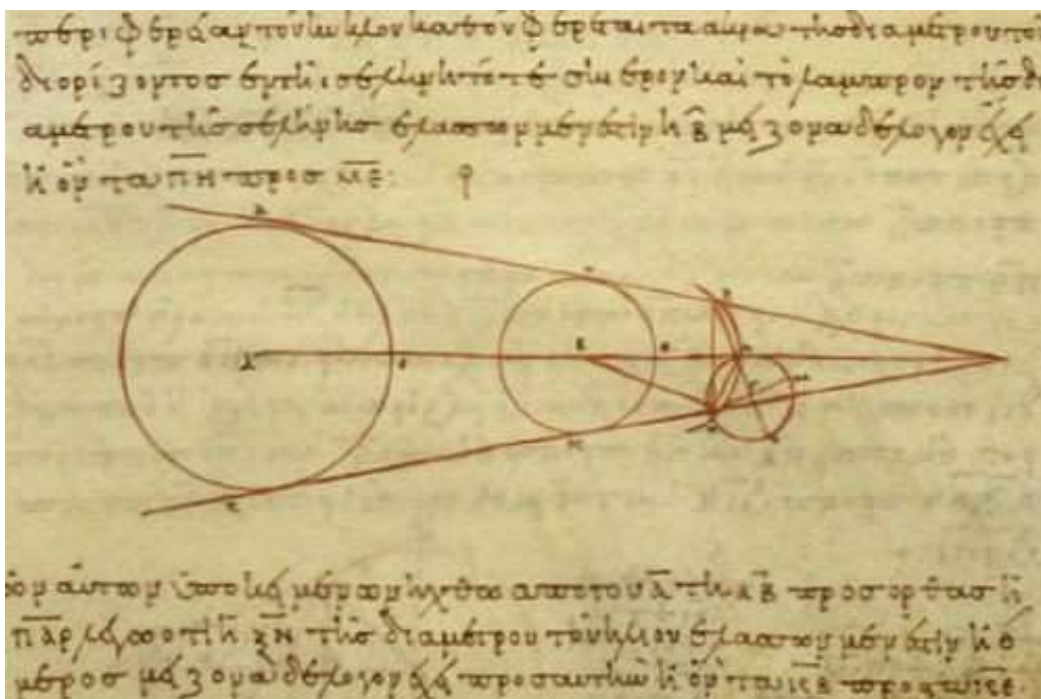 τοῦ κύκλου καθ' ὃν φέρεται τὰ ἄκρα τῆς διαμέτρου τοῦ
διορίζοντος ἐν τῆι σελήνηι τό τε σκιερὸν καὶ τὸ λαμπρὸν τῆς δι
αμέτρου τῆς σελήνης ἐλάσσων μέν ἐστιν ἢ β μείζονα δὲ λόγον ἔχει
ἢ ὃν τὰ πη πρὸς με:
αὐτῶν ὑποκειμένων ἤχθω ἀπὸ τοῦ α τῆι αβ πρὸς ὀρθὰς ἡ
παρ λέγω ὅτι ἡ ξν τῆς διαμέτρου τοῦ ἡλίου ἐλάσσων μέν ἐστιν ἢ θ
μέρος μείζονα δὲ λόγον ἔχει πρὸς αὐτὴν ἢ ὃν τὰ κβ πρὸς